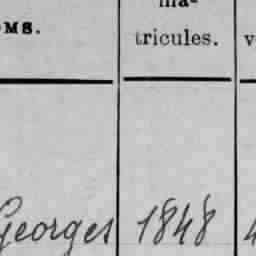 OMS.
ma-
tricules.
Georges 1848